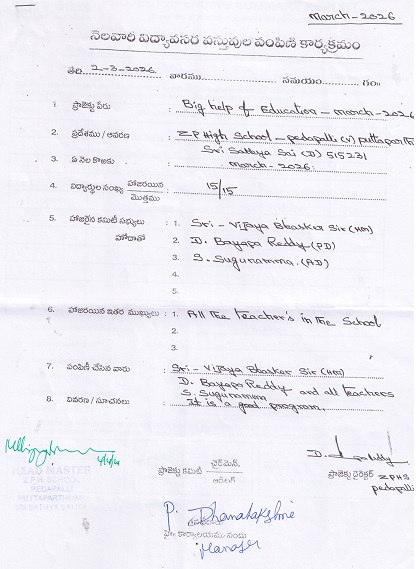 March-2026
నెలవారీ విద్యావసర వస్తువుల పంపిణీ కార్యక్రమం
తేది: 2-3-2026 వారము సమయం గం॥
1 ప్రాజెక్టు పేరు : Big help of Education - march-2026
2. ప్రదేశము / ఆవరణ : Z P High School - pedapalli (v) puttaparthi
Sri Sathya Sai (D) 515231
3. ఏ నెల కొరకు : march-2026.
4. విద్యార్థుల సంఖ్య హాజరయిన / మొత్తము : 15/15
5. హాజరైన కమిటీ సభ్యులు : 1. Sri - Vijaya Bhasker Sir (HM)
హోదాతో 2. D. Bayapa Reddy (PD)
3. S. Sugunamma. (AD)
4.
5.
6. హాజరయిన ఇతర ముఖ్యులు : 1. All the teacher's in the School
2.
3.
7. పంపిణీ చేసిన వారు : Sri - Vijaya Bhasker Sir (HM)
D. Bayapa Reddy and all teachers
S. Sugunamma
8. వివరణ / సూచనలు : It is a good program.
HEAD MASTER
Z.P.H. SCHOOL
PEDAPALLI
PUTTAPARTHI (M)
ప్రాజెక్టు కమిటీ ఛైర్మెన్,
D.
ప్రాజెక్టు డైరెక్టర్ ZPHS
pedapalli
P. Dhanalakshmi
హెడ్ కార్యాలయము నందు
Manager